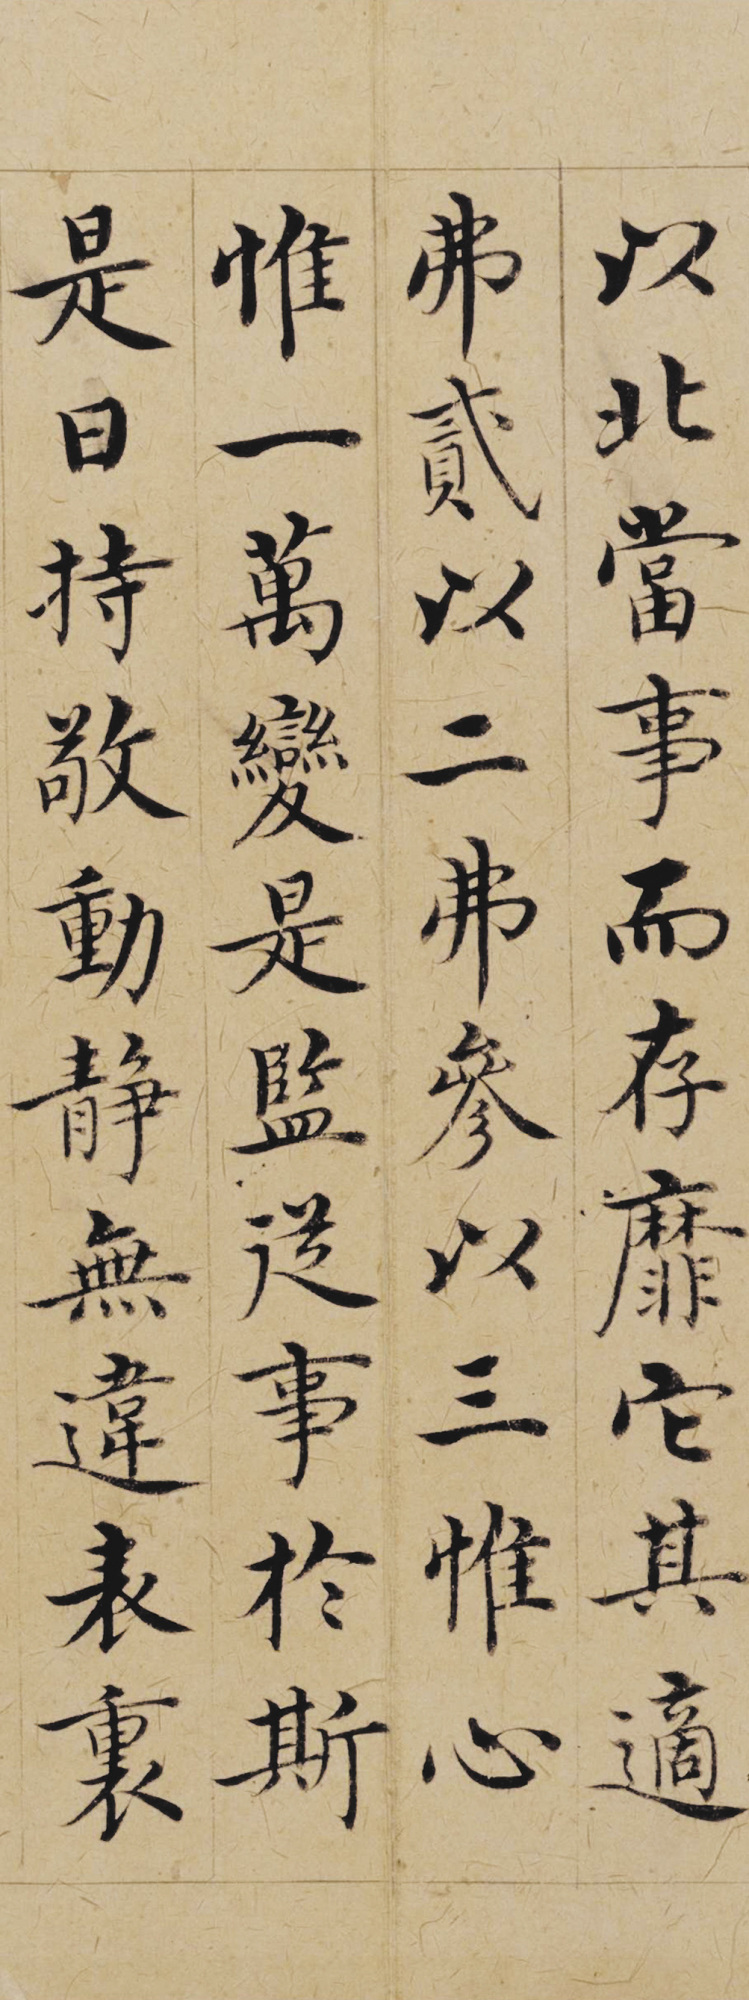 以北當事而存靡它其適
弗貳以二弗參以三惟心
惟一萬變是監從事於斯
是曰持敬動静無違表裏